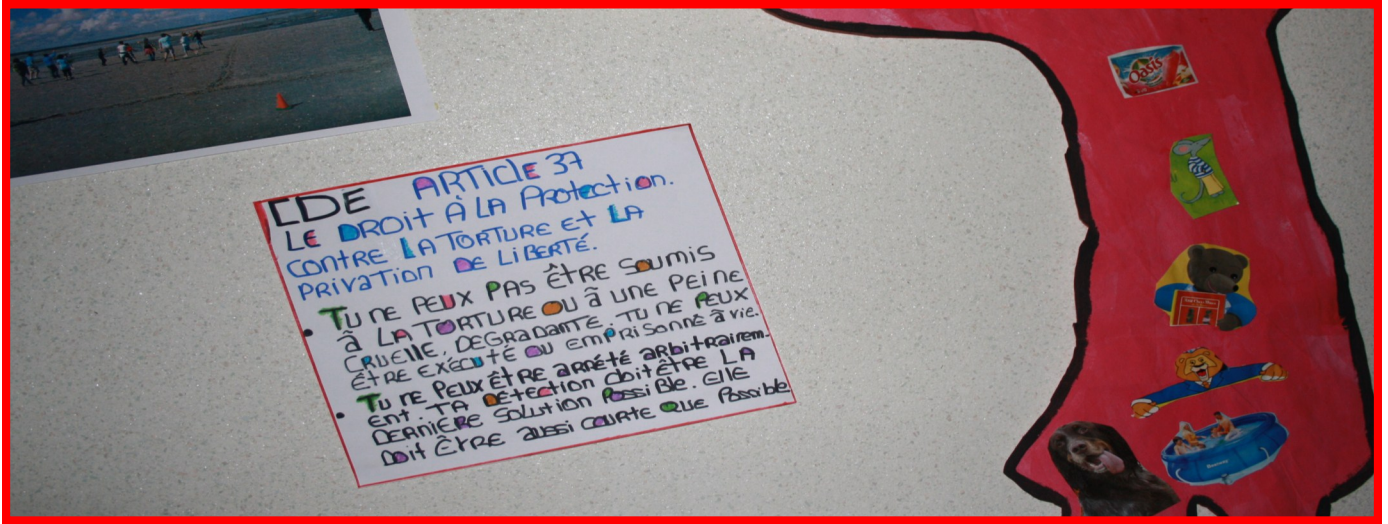 CDE ARTiCLE 37
LE DROit À LA PRotection.
CONTRE LA TORTURE Et LA
PRIVATION DE LiBERTÉ.
• TU NE PEUX PAS ÊTRE SOUMIS
à LA TORTURE OU à UNE PEiNE
CRUELLE, DEGRADANTE. TU NE PEUX
ÊTRE EXÉCUTÉ OU EMPRISONNÉ à vie.
• TU NE PEUX ÊTRE ARRÉTÉ ARbitRAiREM-
ENT. TA DÉTECTION DOIT ÊTRE LA
DERNIÈRE SOLUTION POSSiBLE. ELLE
DOit ÊTRE AUSSi COURTE QUE POSSible
Oasis